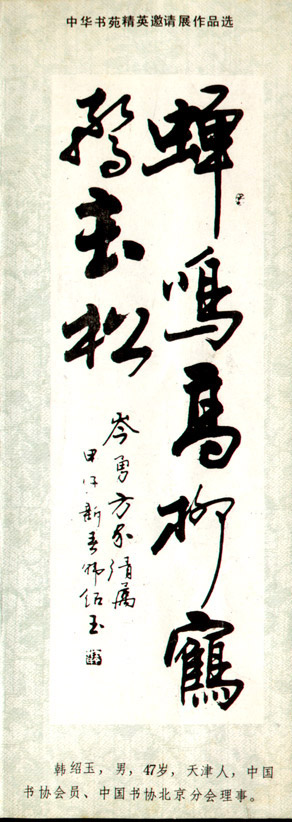 中华书苑精英邀请展作品选
蝉鳴高柳鶴
松
岑勇方家清属
甲子新春韩绍玉
韩绍玉，男，47岁，天津人，中国
书协会员、中国书协北京分会理事。